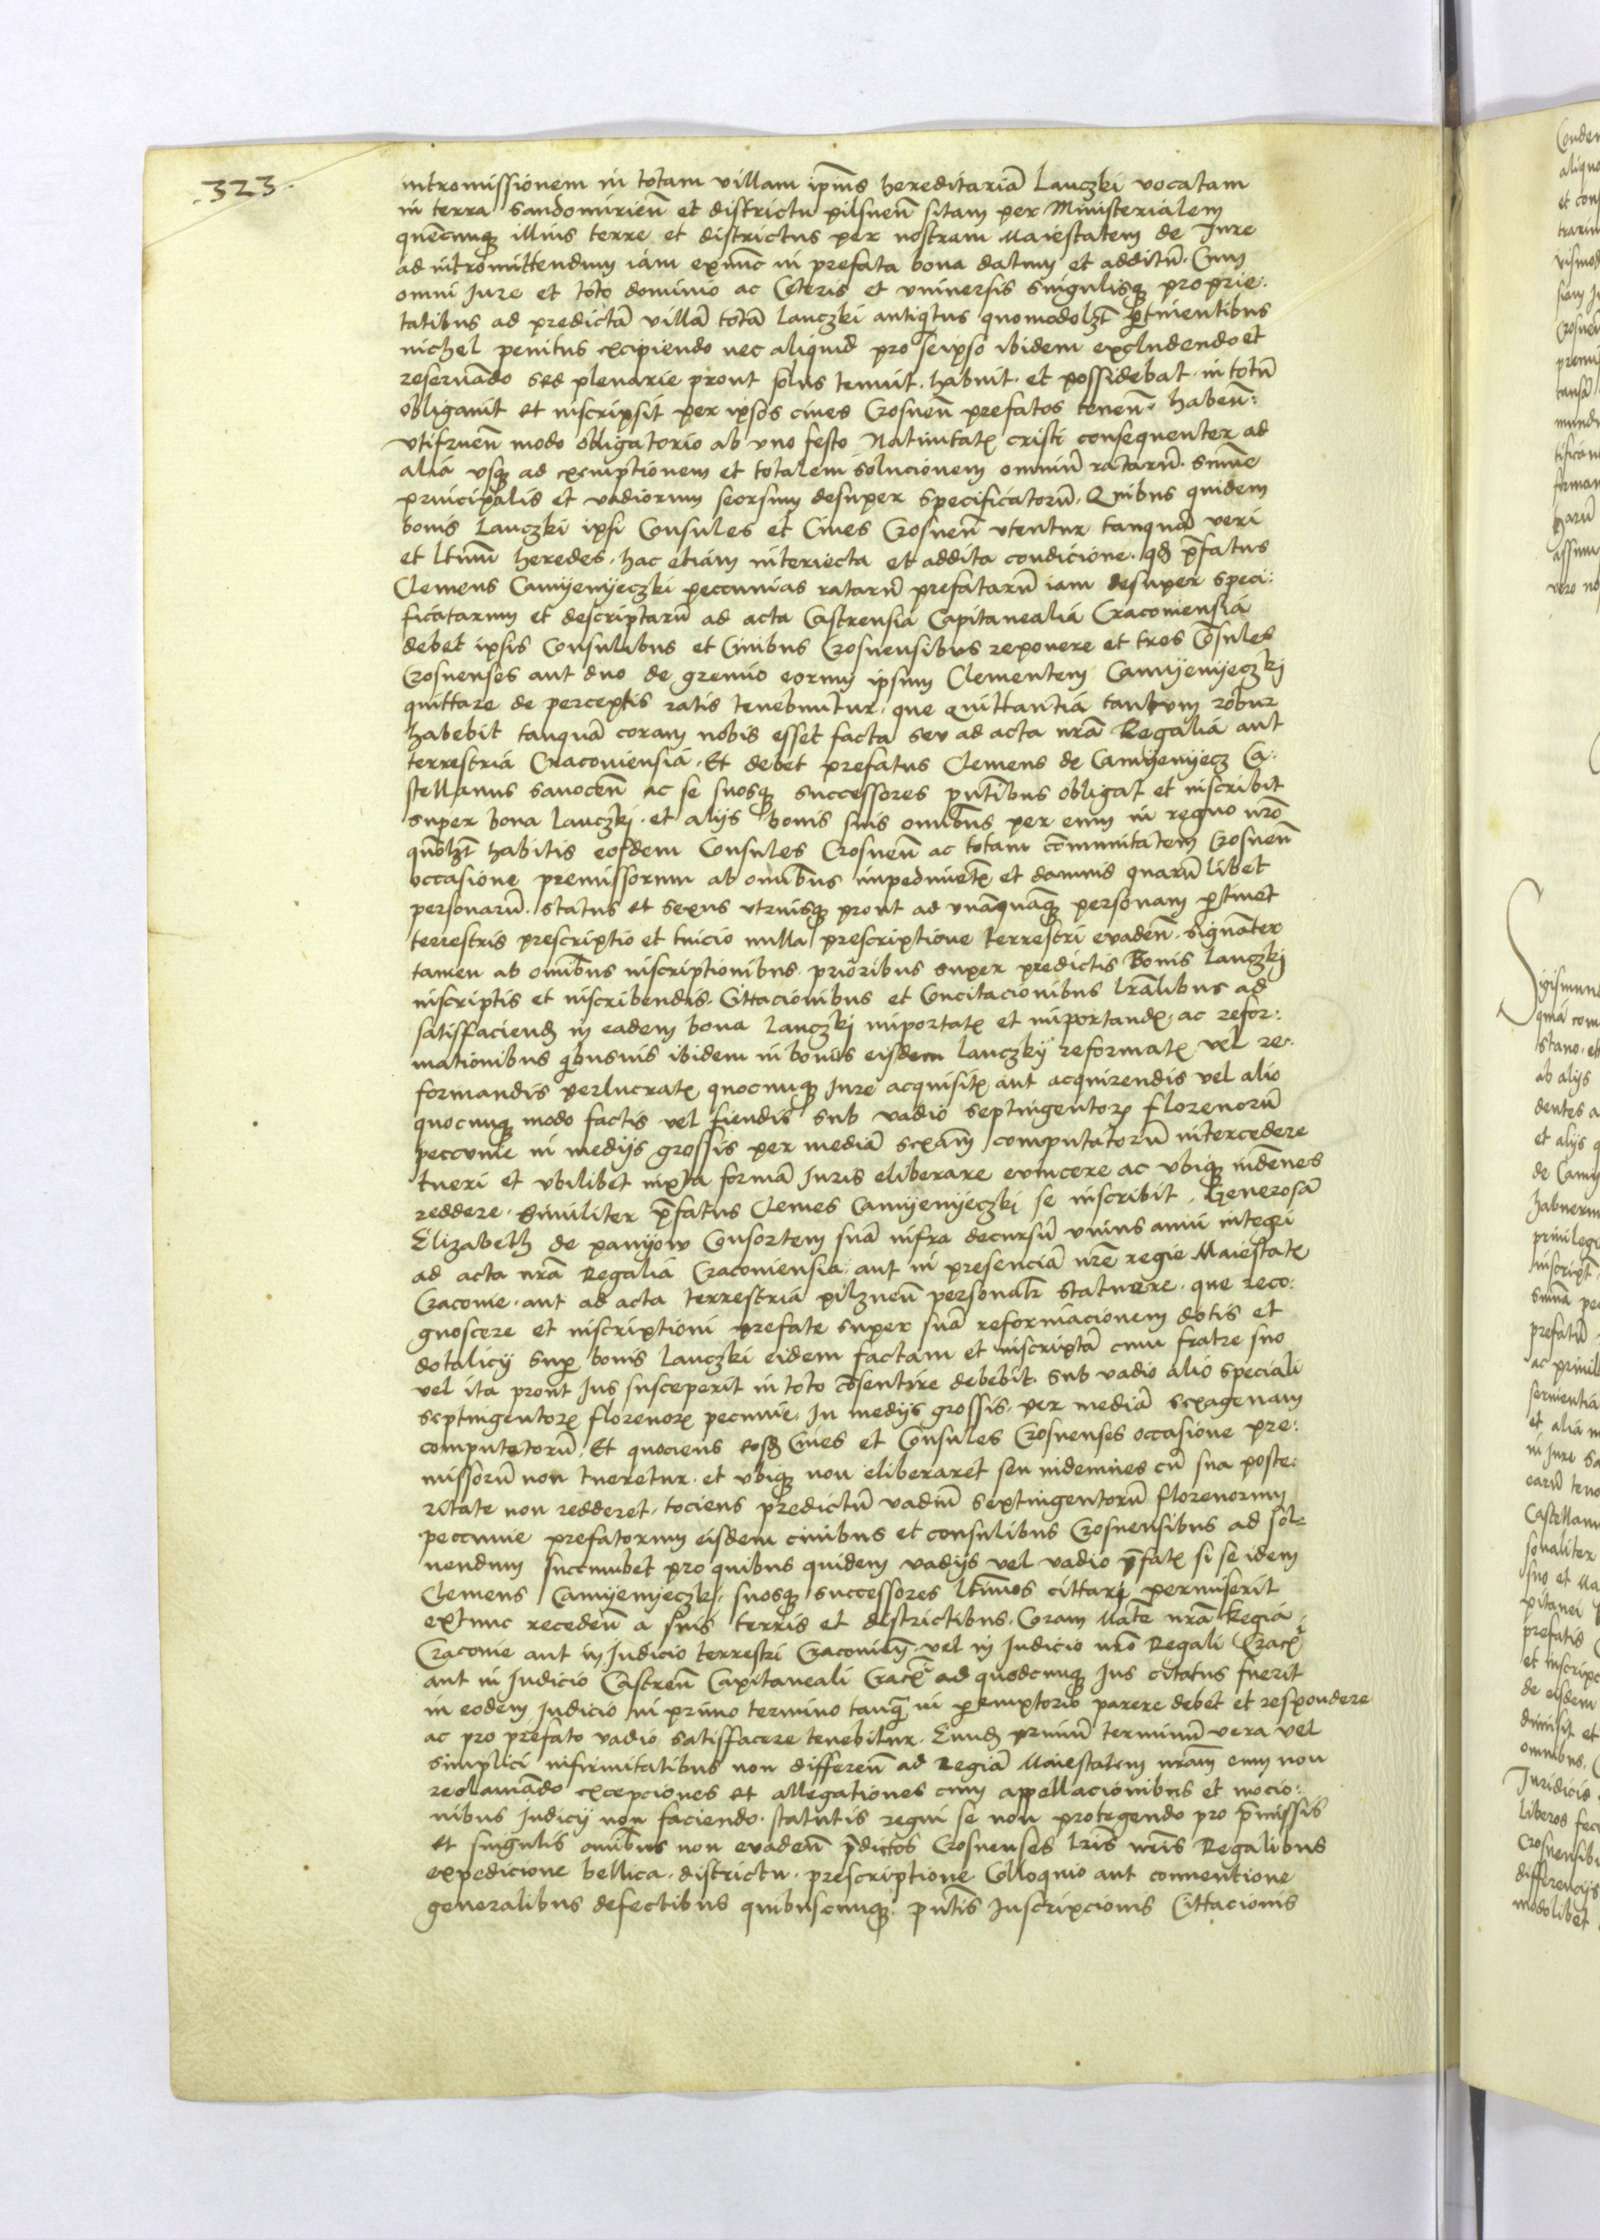 .323.
intromissionem in totam villam ipīus hereditariā Lanczki vocatam
in terra Sandomirien̄ et districtu pilsnen̄ sitam per Ministerialem
quēcumqꝫ illius terre et districtus per nostram Maiestatem de Jure
ad intromittendum iam extunc in prefata bona datum et additū. Cum
omni Jure et toto dominio ac Ceteris et vniuersis singulisqꝫ proprie:
tatibus ad predictā villā totā Lanczki antiqitus quomodolꝫt ꝑtinentibus
nichel penitus excipiendo nec aliquid pro seipso ibidem excludendo et
reseruādo sed plenarie prout solus tenuit. habuit. et possidebat. in totū
obligauit et inscripsit per ipsos ciues Crosnen̄ prefatos tenen̄. haben̄:
vtifruen̄ modo obligatorio ab vno festo Natiuitatꝭ cristi consequenter ad
alia vsqꝫ ad exemptionem et totalem solucionem omniū ratarū. Sum̄e
principalis et vadiorum seorsum desuper specificatorū. Quibus quidem
bonis Lanczki ipsi Consules et Ciues Crosnen̄ vtentur tanquā veri
et ltīmi heredes. hac etiam interiecta et addita condicione. qđ p̄fatus
Clemens Camyenyeczki peccunias ratarū prefatarū iam desuper speci:
ficatarum et descriptarū ad acta Castrensia Capitanealia Cracouiensia
debet ipsis Consulibus et Ciuibus Crosnensibus reponere et tres Cōsules
Crosnenses aut duo de gremio eorum ipsum Clementem Camyenyeczkj
quittare de perceptis ratis tenebuntur. que quittantia tantum robur
habebit tanquā coram nobis esset facta seu ad acta nr̄a Regalia aut
terrestria Cracouiensia. Et debet prefatus Clemens de Camyenyecz Ca:
stellanus sanocen̄ ac se suosqꝫ successores pn̄tibus obligat et inscribit
super bona Lanczkj. et alijs bonis suis omībus per eum in regno nr̄o
quōlꝫt habitis eosdem Consules Crosnen̄ ac totam cōmunitatem Crosnen̄
occasione premissorum ab omībus impedimētꝭ et damnis quarūlibet
personarū. status et sexus vtriusqꝫ prout ad vnāquāqꝫ personam ꝑtinet
terrestris prescriptio et tuicio nulla prescriptione terrestri evaden̄. signāter
tamen ab omībus inscriptionibus prioribus super predictis Bonis Lanczkj
inscriptis et inscribendis. Cittacionibus et Concitacionibus lrālibus ad
satisfaciend in eadem bona Lanczkj importatꝭ et importandꝭ. ac refor:
mationibus qbusuis ibidem in bonis eisdem Lanczkij reformatꝭ vel re:
formandis perlucratꝭ quocumqꝫ Jure acquisitꝭ aut acquirendis vel alio
quocumqꝫ modo factis vel fiendis sub vadio septingentorꝭ florenorū
peccunie in medijs grossis per mediā sexam̄ computatorū intercedere
tueri et vbilibet iuxta formā Juris eliberare euincere ac vbiqꝫ indēnes
reddere. Similiter p̄fatus Clemēs Camyenyeczkj se inscribit. Generosā
Elizabeth de panyow Consortem suā infra decursū vnius anni integri
ad acta nr̄a Regalia Cracouiensia. aut in presenciā nr̄e regie Maiestatꝭ
Cracouie. aut ad acta terrestria pilznen̄ personalr̄ statuere. que reco:
gnoscere et inscriptioni prefate super suā reformacionem dotis et
dotalicij suꝑ bonis Lanczki eidem factam et inscriptā cum fratre suo
vel ita prout Jus susceperit in toto cōsentire debebit. sub vadio alio speciali
septingentorꝭ florenorꝭ peccunie. In medijs grossis. per mediā sexagenam
computatorū. Et quociens eosđ Ciues et Consules Crosnenses occasione pre:
missorū non tueretur. et vbiqꝫ non eliberaret seu indemnes cū sua poste:
ritate non redderet. tociens predictū vadiū septingentorū florenorum
peccunie prefatorum eisdem ciuibus et consulibus Crosnensibus ad sol=
uendum succumbet pro quibus quidem vadijs vel vadio p̄fatꝭ si se idem
Clemens Camyenyeczkj. suosqꝫ successores ltīmos cittari permiserit
extunc receden̄ a suis terris et destrictibus. Coram Mate nr̄a Regia
Cracouie aut in Judicio terrestri Cracouien̄. vel in Judicio nr̄o Regali Cracꝭ
aut in Judicio Castren̄ Capitaneali Cracꝭ ad quodcumqꝫ Jus citatus fuerit
in eodem Judicio in primo termino tanqꝫ in ꝑemptorio parere debet et respondere
ac pro prefato vadio satisfacere tenebitur. Eundꝫ primū terminū vera vel
simplici infirmitatibus non differen̄ ad Regiā Maiestatem nr̄am eum non
reclamādo excepciones et allegationes cum appellacionibus et mocio:
nibus Judicij non faciendo. statutis regni se non protegendo pro p̄missis
et singulis omībus non evaden̄ p̄dictos Crosnenses lr̄is nr̄is Regalibus
expedicione bellica. districtu. prescriptione Colloquio aut conuentione
generalibus defectibus quibuscumqꝫ pn̄tis Inscripcionis Cittacionis